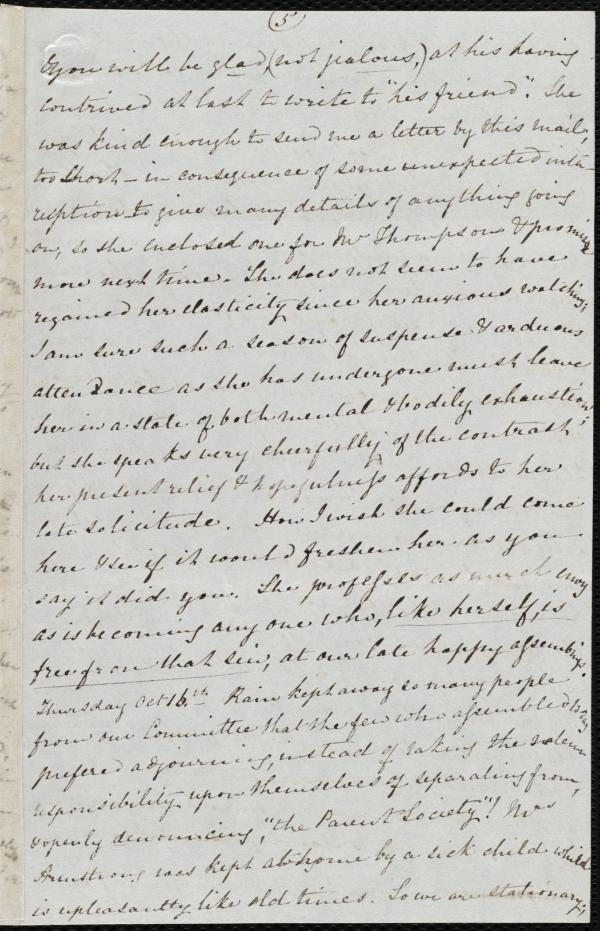 (5)
& you will be glad, (not jealous,) at his having
contrived at last to write to "his friend". She
was kind enough to send me a letter by this mail,
too short - in consequence of some unexpected inter-
ruption to give many details of anything going
on, so she enclosed one for Mr Thompson & promises
more next time. She does not seem to have
regained her elasticity since her anxious watching;
I am sure such a season of suspense & arduous
attendance as she has undergone must leave
her in a state of both mental & bodily exhaustion;
but she speaks very cheerfully of the contrast
her present relief & hopefulness affords to her
late solicitude. How I wish she could come
here & see if it would freshen her as you
say it did you. She professes as much envy
as is becoming any one who, like herself, is
free from that sin, at our late happy assembings.
Thursday Oct 16.th Rain kept away so many people
from our Committee that the few who assembled
prefered adjourning, instead of taking the solemn
responsibility upon themselves of separating from,
& openly denouncing, "the Parent Society"! Mrs
Armstrong was kept at home by a sick child which
is unpleasantly like old times. So we are stationary;